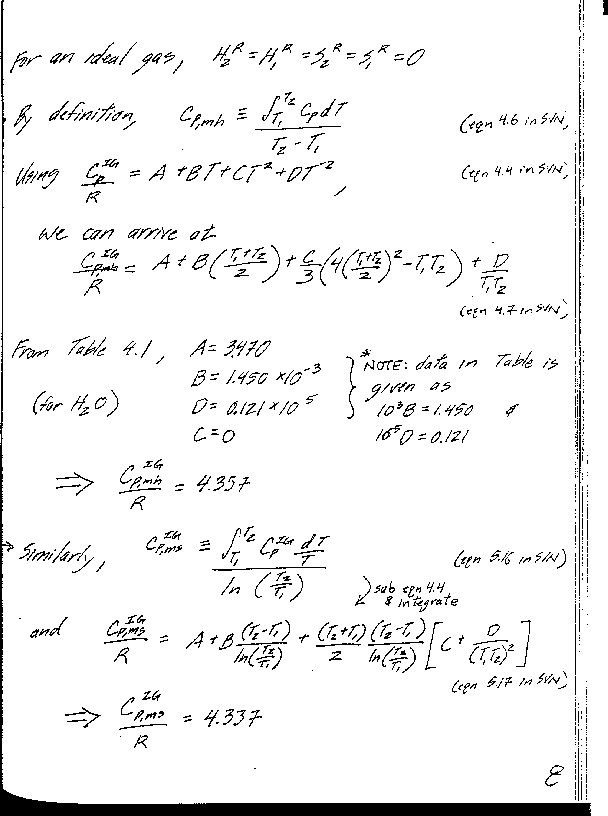 For an ideal gas, H₂ᴿ = H₁ᴿ = S₂ᴿ = S₁ᴿ = 0
By definition, C_P,mh ≡ ∫_T₁^T₂ C_P dT / (T₂ - T₁) (eqn 4.6 in SVN)
Using C_P^IG / R = A + BT + CT² + DT⁻², (eqn 4.4 in SVN)
we can arrive at
C_P,mh^IG / R = A + B((T₁+T₂)/2) + C/3 (4((T₁+T₂)/2)² - T₁T₂) + D/(T₁T₂)
(eqn 4.7 in SVN)
From Table 4.1, A = 3.470
B = 1.450 × 10⁻³
(for H₂O) D = 0.121 × 10⁵
C = 0
*NOTE: data in Table is
given as
10³B = 1.450 &
10⁵D = 0.121
⇒ C_P,mh^IG / R = 4.357
→ Similarly, C_P,ms^IG ≡ ∫_T₁^T₂ C_P^IG dT/T / ln(T₂/T₁) (eqn 5.16 in SVN)
sub eqn 4.4
& integrate
and C_P,ms^IG / R = A + B (T₂-T₁)/ln(T₂/T₁) + (T₂+T₁)/2 (T₂-T₁)/ln(T₂/T₁) [C + D/(T₁T₂)²]
(eqn 5.17 in SVN)
⇒ C_P,ms^IG / R = 4.337